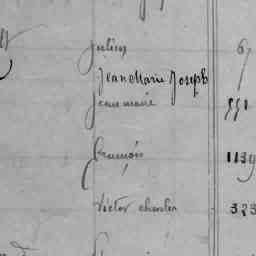 Julien 67
Jean Marie Joseph
Jean marie 551
François 1139
Victor charles 323